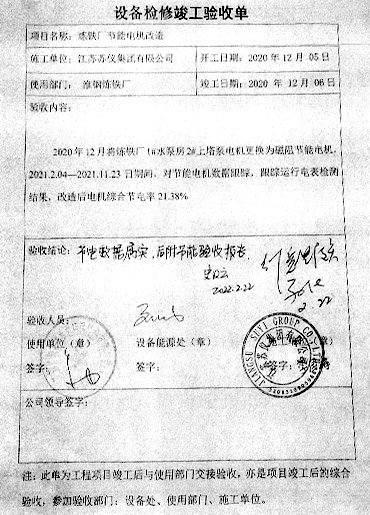 设备检修竣工验收单
项目名称：炼铁厂节能电机改造
施工单位：江苏苏仪集团有限公司 开工日期：2020 年 12 月 05日
使用部门：淮钢炼铁厂 竣工日期：2020 年 12 月 06日
验收内容：
2020年12月将炼铁厂1#水泵房2#上塔泵电机更换为磁阻节能电机，
2021.2.04—2021.11.23 日期间，对节能电机数据跟踪，跟踪运行电表检测
结果，改造后电机综合节电率 21.38%
验收结论：节电数据属实，后附节能验收报告.
2022.2.22
2.22
验收人员：
使用单位（章） 设备能源处（章）
签字： 签字：
JIANGSU SUYI GROUP CO.,LTD
公司领导签字：
注：此单为工程项目竣工后与使用部门交接验收，亦是项目竣工后的综合
验收，参加验收部门：设备处、使用部门、施工单位。